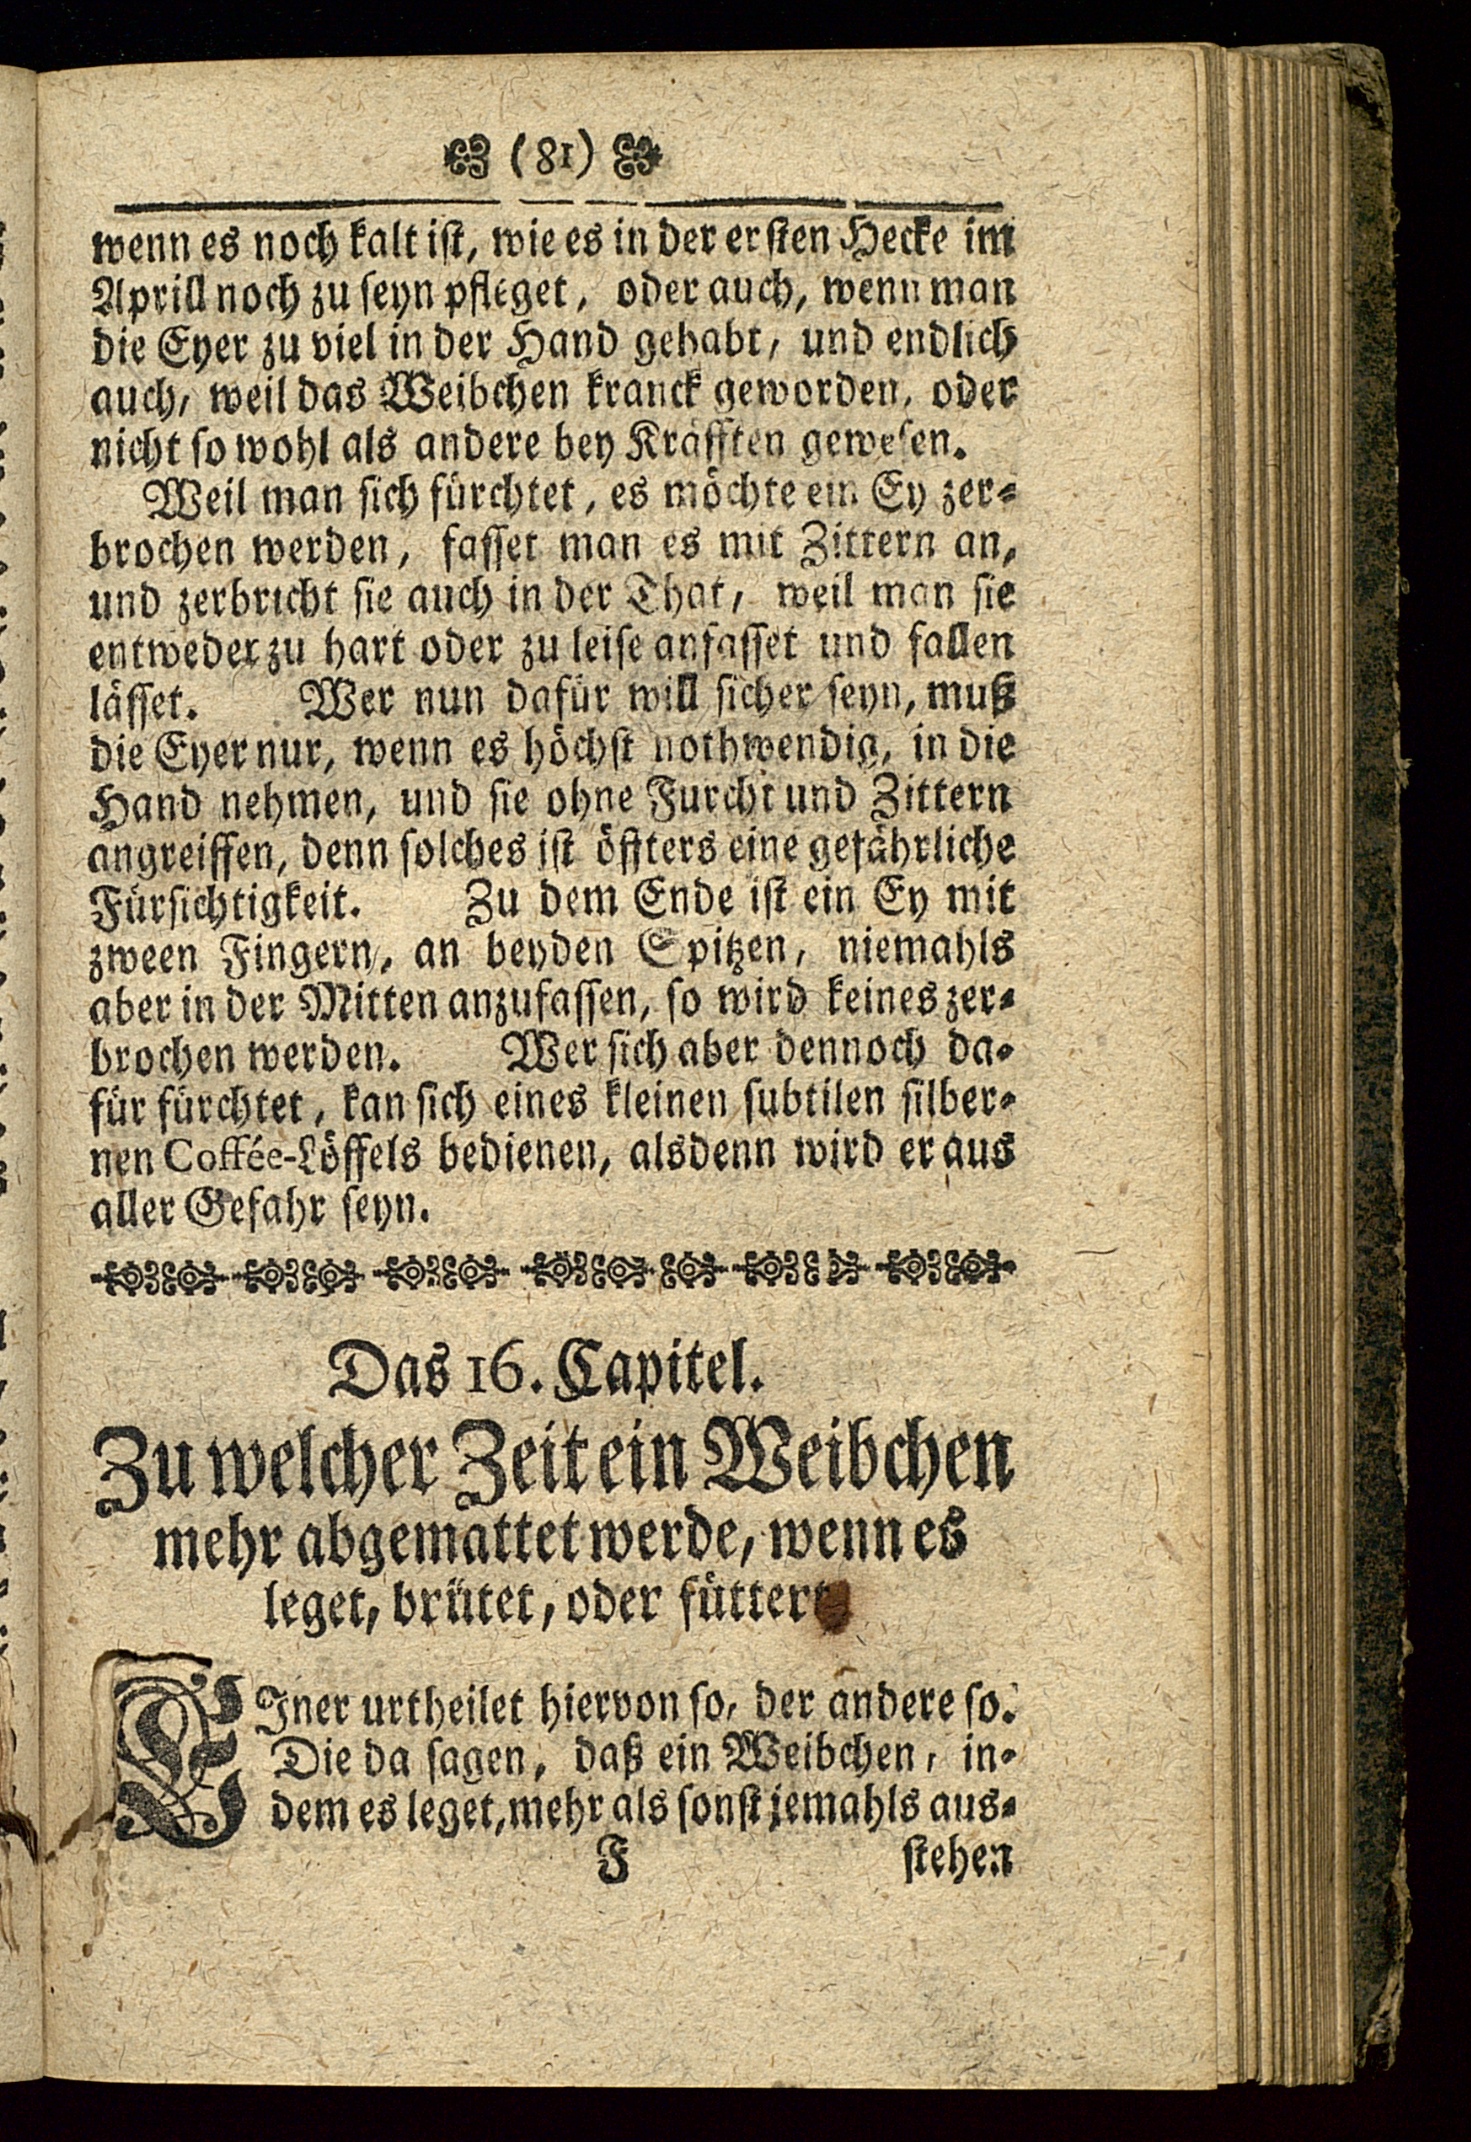 (81)
wenn es noch kalt ist, wie es in der ersten Hecke im
Aprill noch zu seyn pfleget, oder auch, wenn man
die Eyer zu viel in der Hand gehabt, und endlich
auch, weil das Weibchen kranck geworden, oder
nicht so wohl als andere bey Kräfften gewesen.
Weil man sich fürchtet, es möchte ein Ey zer-
brochen werden, fasset man es mit Zittern an,
und zerbricht sie auch in der That, weil man sie
entweder zu hart oder zu leise anfasset und fallen
lässet. Wer nun dafür will sicher seyn, muß
die Eyer nur, wenn es höchst nothwendig, in die
Hand nehmen, und sie ohne Furcht und Zittern
angreiffen, denn solches ist öffters eine gefährliche
Fürsichtigkeit. Zu dem Ende ist ein Ey mit
zween Fingern, an beyden Spitzen, niemahls
aber in der Mitten anzufassen, so wird keines zer-
brochen werden. Wer sich aber dennoch da-
für fürchtet, kan sich eines kleinen subtilen silber-
nen Coffée-Löffels bedienen, alsdenn wird er aus
aller Gefahr seyn.
Das 16. Capitel.
Zu welcher Zeit ein Weibchen
mehr abgemattet werde, wenn es
leget, brütet, oder füttert
EIner urtheilet hiervon so, der andere so.
Die da sagen, daß ein Weibchen, in-
dem es leget, mehr als sonst jemahls aus-
F stehen